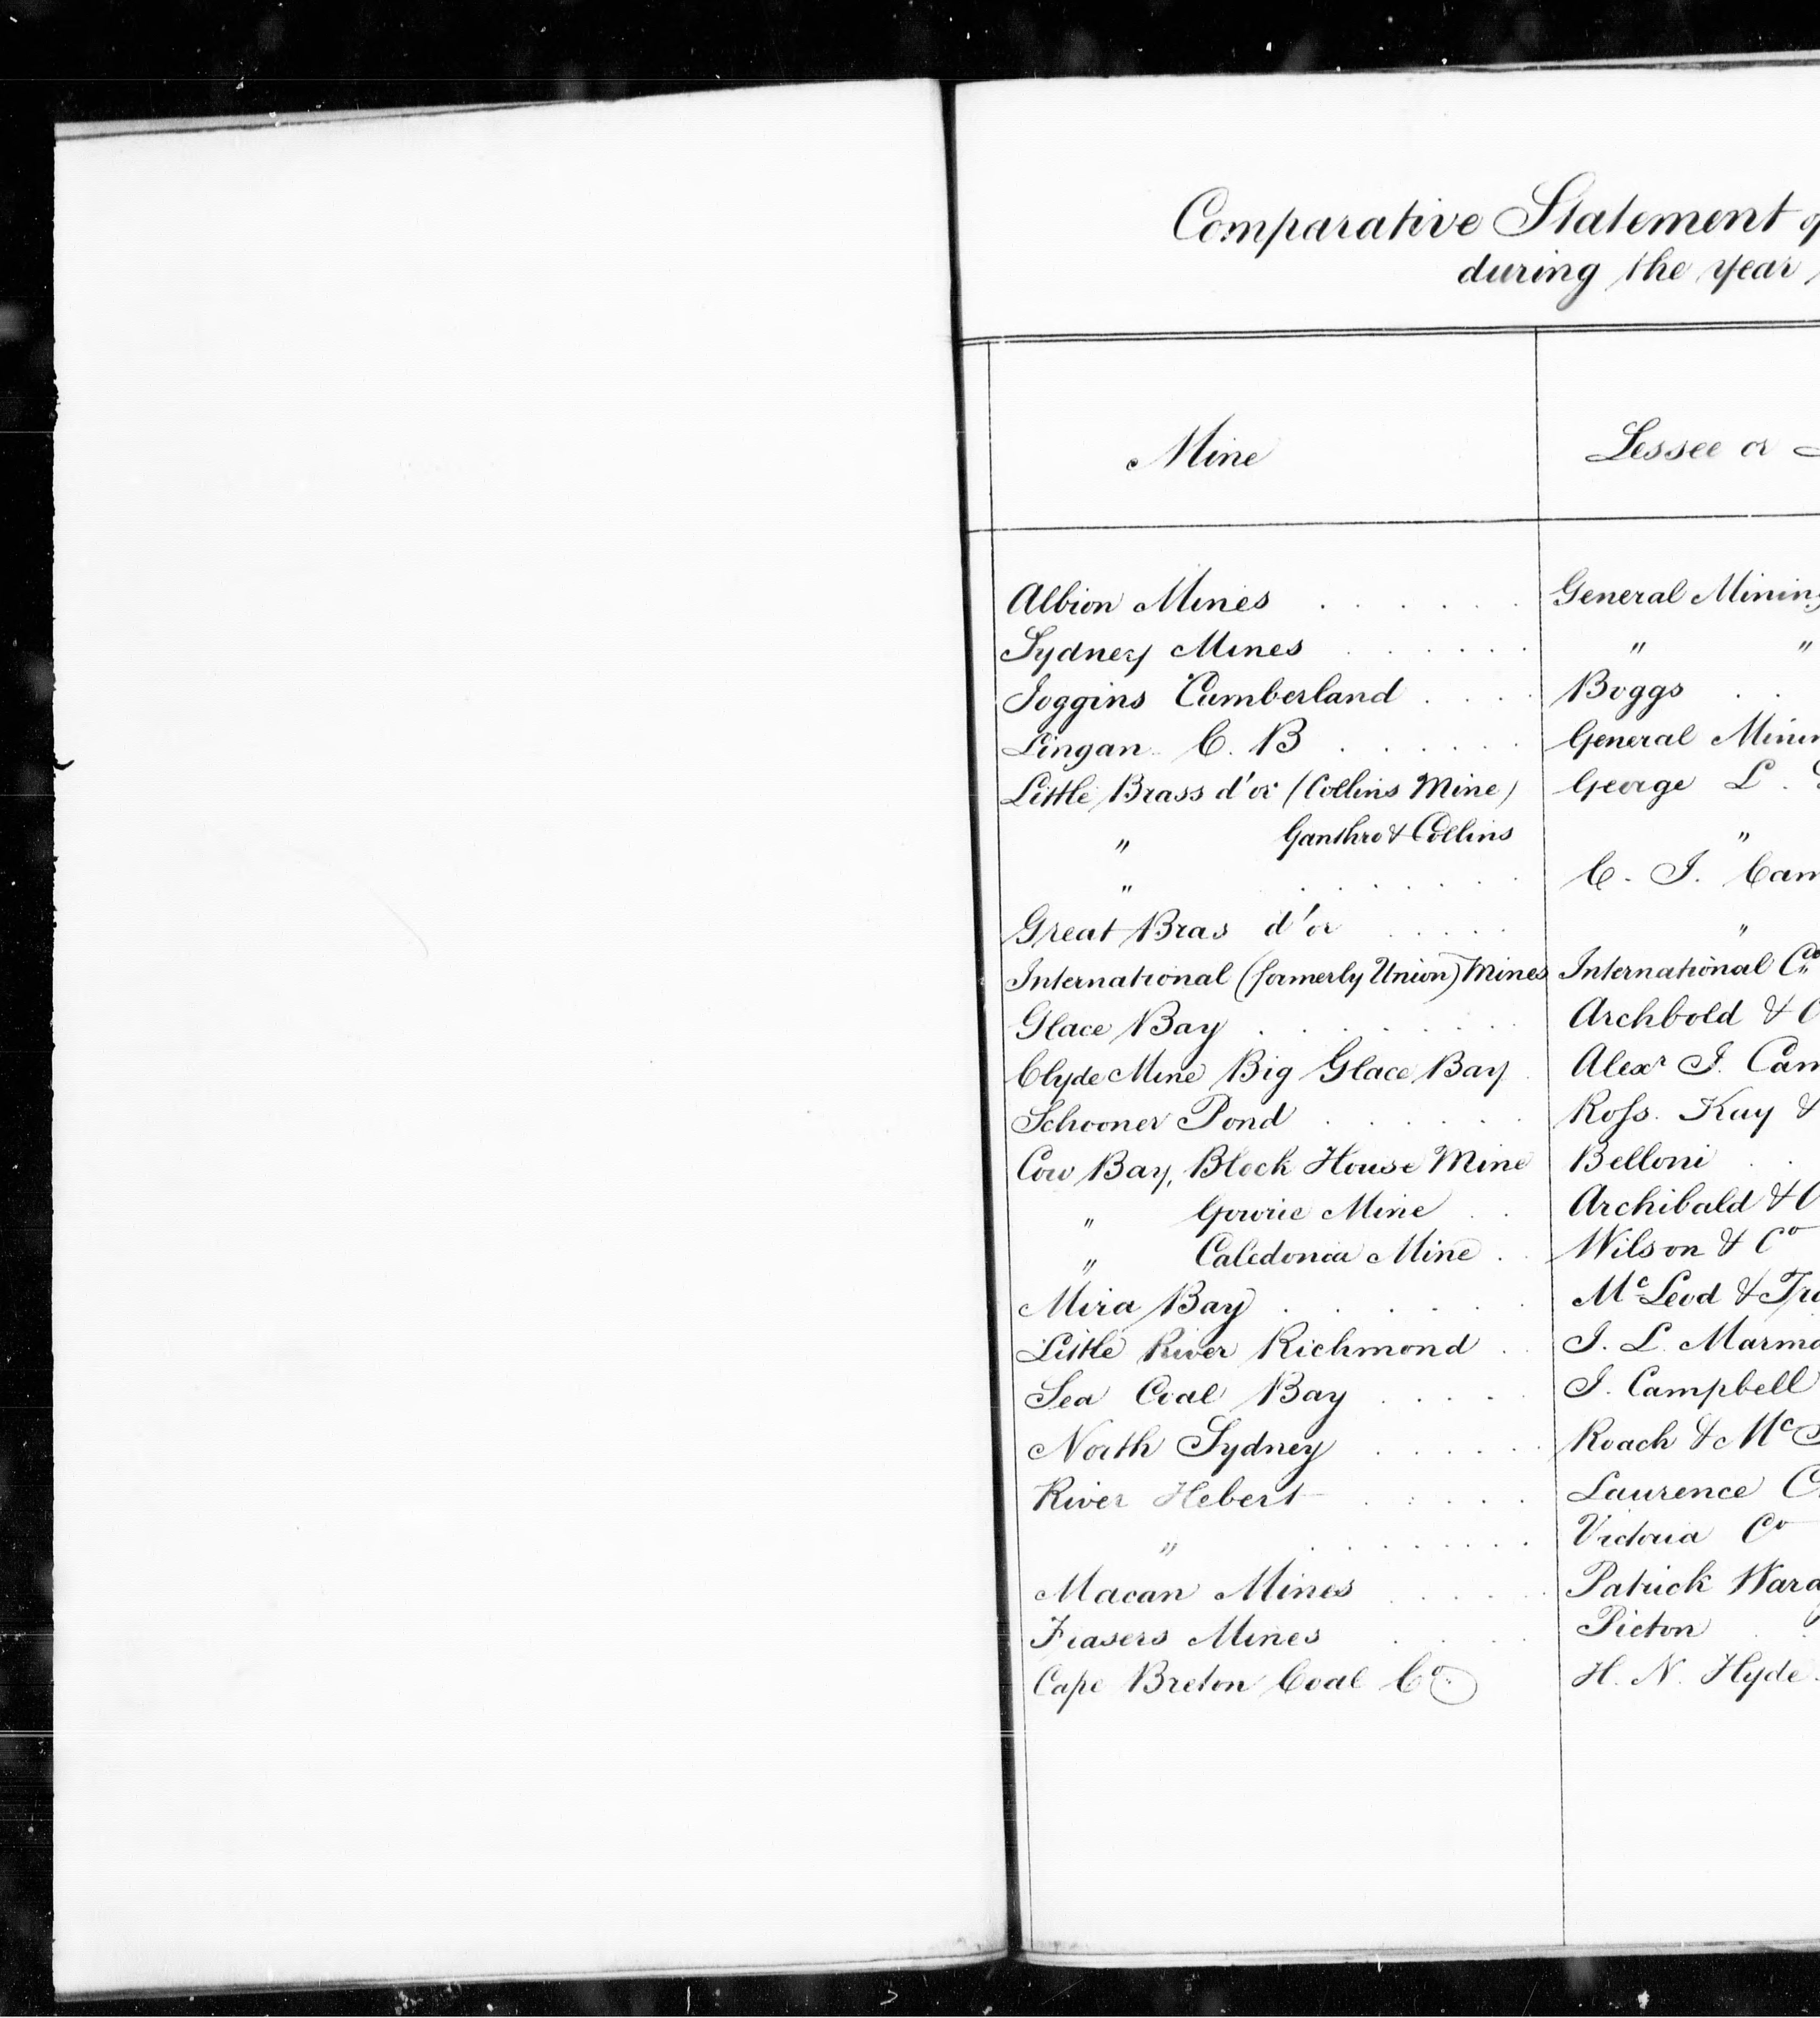 Comparative Statement of
during the year
Mine Lessee or
Albion Mines . . . . . . General Mining
Sydney Mines . . . . . . " "
Joggins Cumberland . . . . Boggs . .
Lingan C. B . . . . . . General Minin
Little Brass d'or (Collins Mine) George L.
" Ganthro & Collins "
" . . . . . . . C. J. Cam
Great Bras d'or . . . . . "
International (formerly Union) Mines International Co
Glace Bay . . . . . . . Archbold & C
Clyde Mine Big Glace Bay . Alexr J. Cam
Schooner Pond . . . . . . Ross. Kay &
Cow Bay, Block House Mine Belloni . .
" Gowrie Mine . . Archibald & C
" Caledonia Mine . . Wilson & Co
Mira Bay . . . . . . McLeod & Tro
Little River Richmond . . J. L. Marma
Sea Coal Bay . . . . J. Campbell
North Sydney . . . . . . Roach & Mc
River Hebert . . . . . Laurence C
" . . . . . . . . Victoria Co
Macan Mines . . . . . Patrick Ward
Frasers Mines . . . . Picton . .
Cape Breton Coal Co. H. N. Hyde.